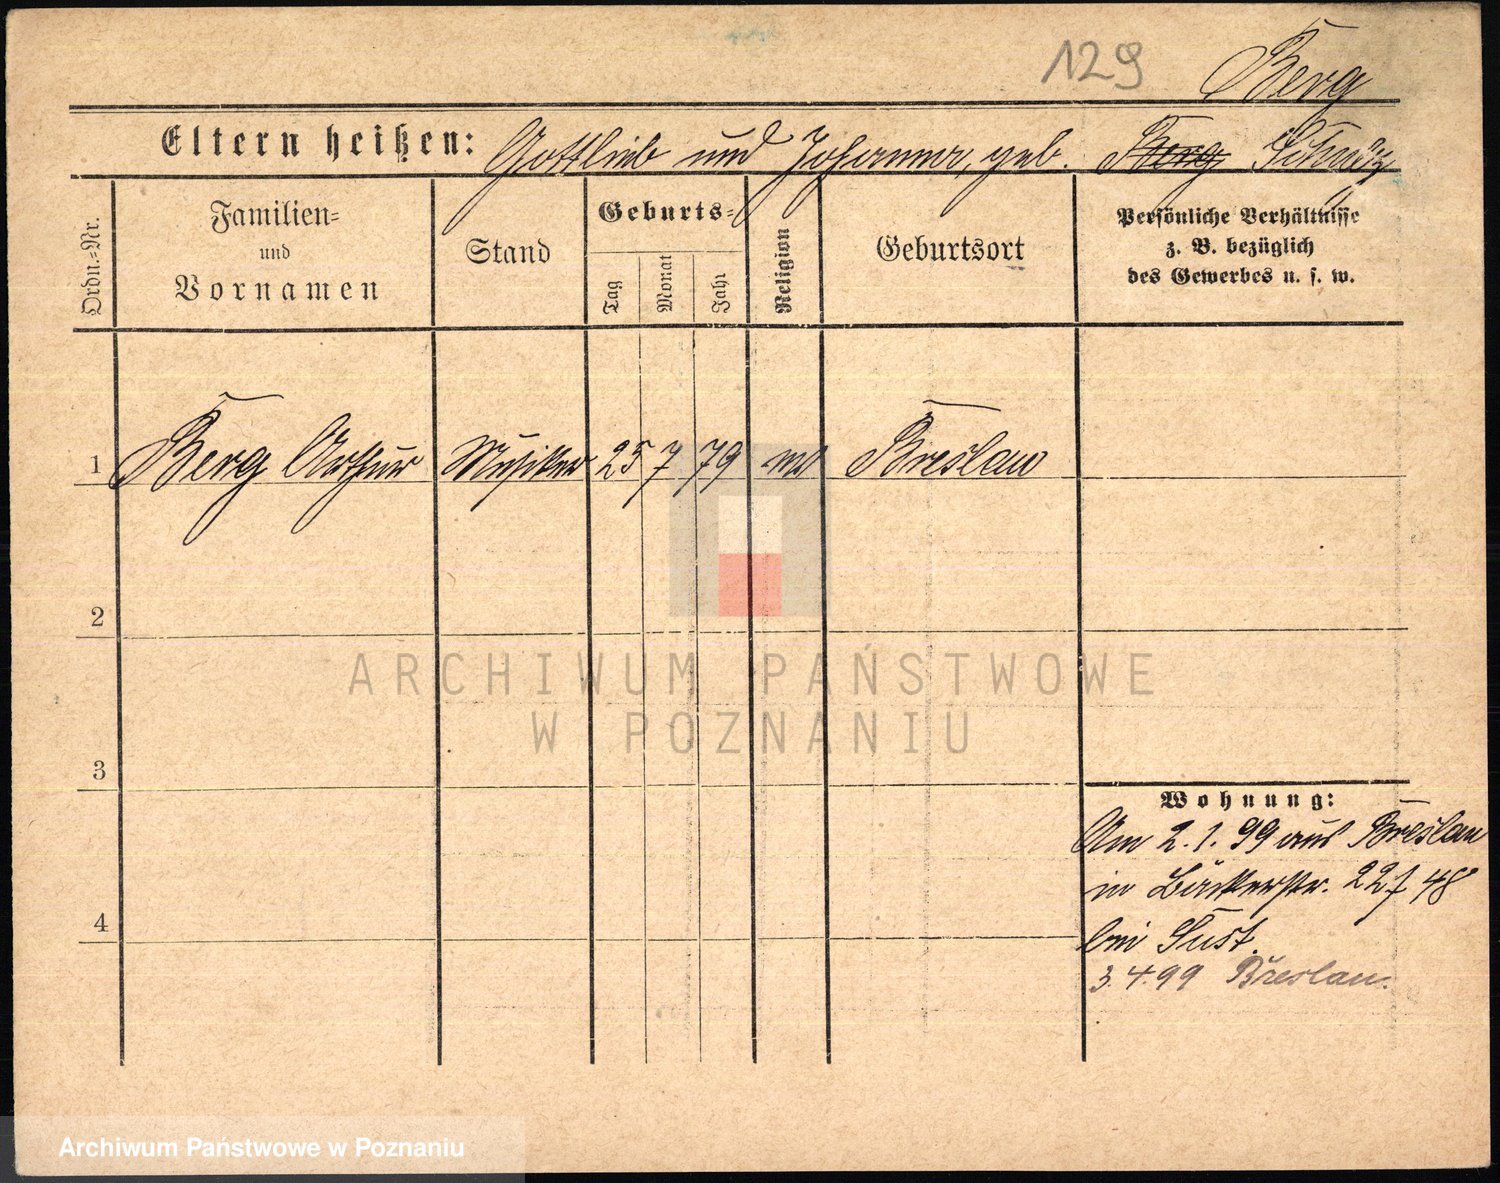 129
Berg
Eltern heißen: Gottlieb und Johanna, geb. Berg
Ordn.=Nr.
Familien=
und
Vornamen
Stand
Geburts=
Tag
Monat
Jahr
Religion
Geburtsort
Persönliche Verhältnisse
z. B. bezüglich
des Gewerbes u. s. w.
1 Berg Arthur Musiker 25 7 79 Breslau
2
3
4
Wohnung:
Am 2. 1. 99 aus Breslau
in Bäckerstr. 22
bei Just.
3. 4. 99 Breslau.
ARCHIWUM PAŃSTWOWE
W POZNANIU
Archiwum Państwowe w Poznaniu